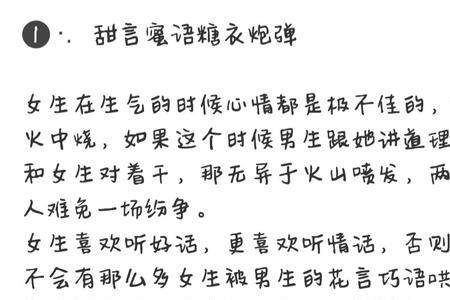 1·. 甜言蜜语糖衣炮弹
女生在生气的时候心情都是极不佳的，
火中烧，如果这个时候男生跟她讲道理
和女生对着干，那无异于火山喷发，两
人难免一场纷争。
女生喜欢听好话，更喜欢听情话，否则
不会有那么多女生被男生的花言巧语哄